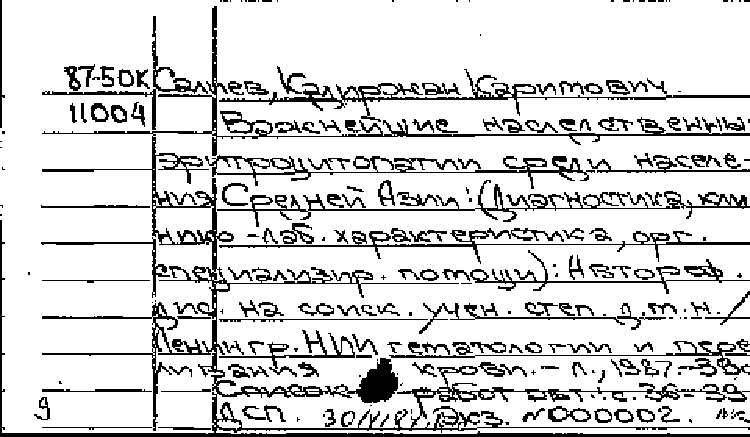 87-50К Салиев, Кадиржан Каримович
11004 Важнейшие наследственны
эритроцитопатии среди населе-
ния Средней Азии: (Диагностика, кли
нико-лаб. характеристика, орг.
специализир. помощи): Автореф.
дис. на соиск. учен. степ. д.м.н. /
Ленингр. НИИ гематологии и пере
ливания крови. - Л., 1987.-38с
Список работ авт.: с. 36-39
9 ДСП. Экз. N000002.